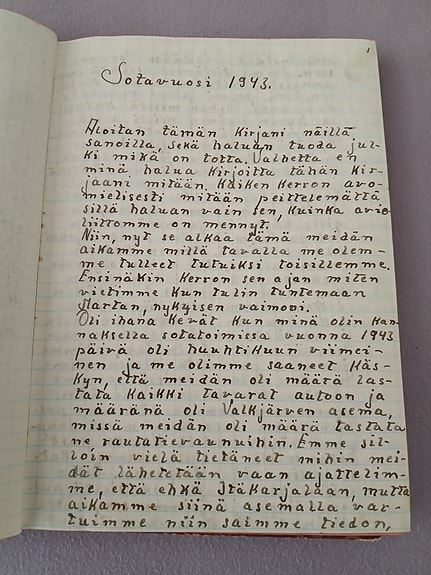 1
Sotavuosi 1943.
Aloitan tämän Kirjani näillä
sanoilla, sekä haluan tuoda jul-
ki mikä on totta. Valhetta en
minä halua Kirjoitta tähän Kir-
jaani mitään. Kaiken Kerron avo-
mielisesti mitään peittelemättä
sillä haluan vain sen, Kuinka avio-
liittomme on mennyt.
Niin, nyt se alkaa tämä meidän
aikamme millä tavalla me olem-
me tulleet tutuiksi toisillemme.
Ensinäkin Kerron sen ajan miten
vietimme Kun tulin tuntemaan
Martan, nykyisen vaimoni.
Oli ihana Kevät Kun minä olin Kan-
naksella sotatoimissa vuonna 1943
päivä oli huuhtikuun viimei-
nen ja me olimme saaneet Käs-
Kyn, että meidän oli määrä las-
tata Kaikki tavarat autoon ja
määränä oli Valkjärven asema,
missä meidän oli määrä lastata
ne rautatievaunuihin. Emme sil-
loin vielä tietäneet mihin mei-
dät lähetetään vaan ajattelim-
me, että ehkä Itäkarjalaan, mutta
aikamme siinä asemalla var-
tuimme niin saimme tiedon,